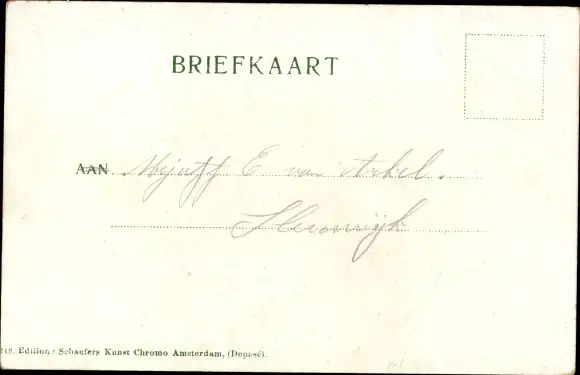 BRIEFKAART
AAN Mejuff E van Arkel.
218. Edition: Schaefers Kunst Chromo Amsterdam, (Deposé).